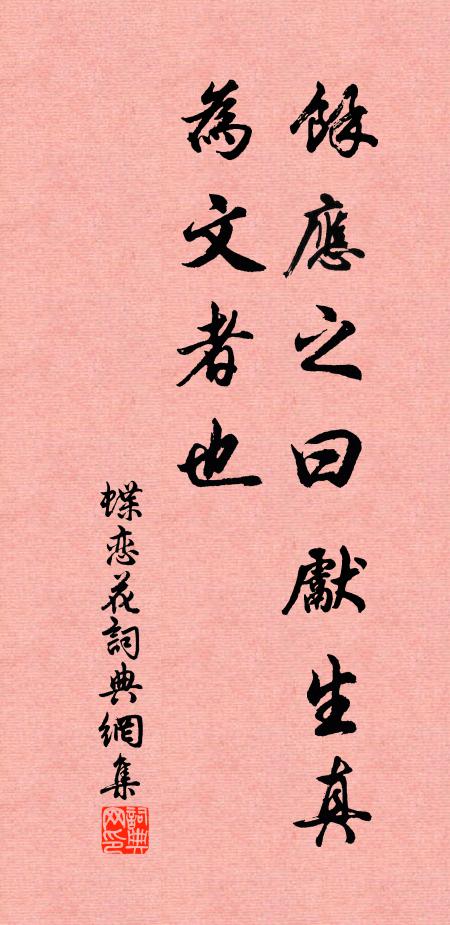 餘應之曰獻生真
為文者也
蝶恋花詞典網集
詞典网印